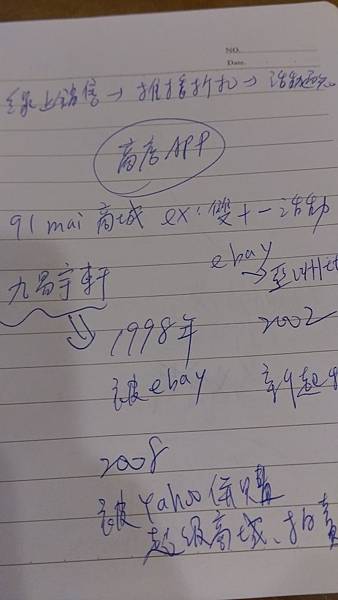 NO.
Date.
線上銷售→推播折扣→活動
商店APP
91 mai 商城 ex:雙十一活動
ebay
九易宇軒
→亞洲
1998年 2002
被ebay 新起
2008
被Yahoo併購
超級商城、拍賣